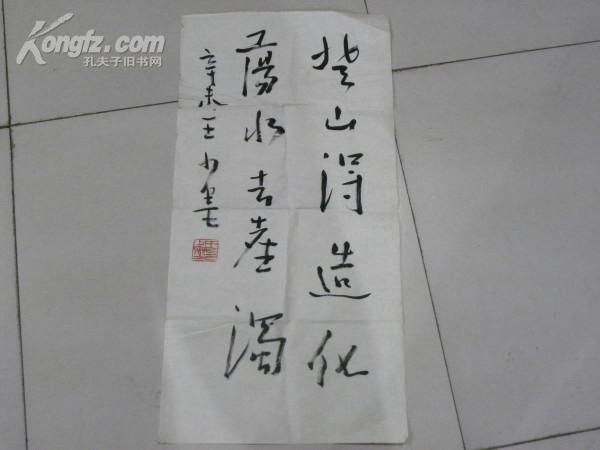 登山得造化
荡水去尘浊
辛未 王小
Kongfz.com
孔夫子旧书网